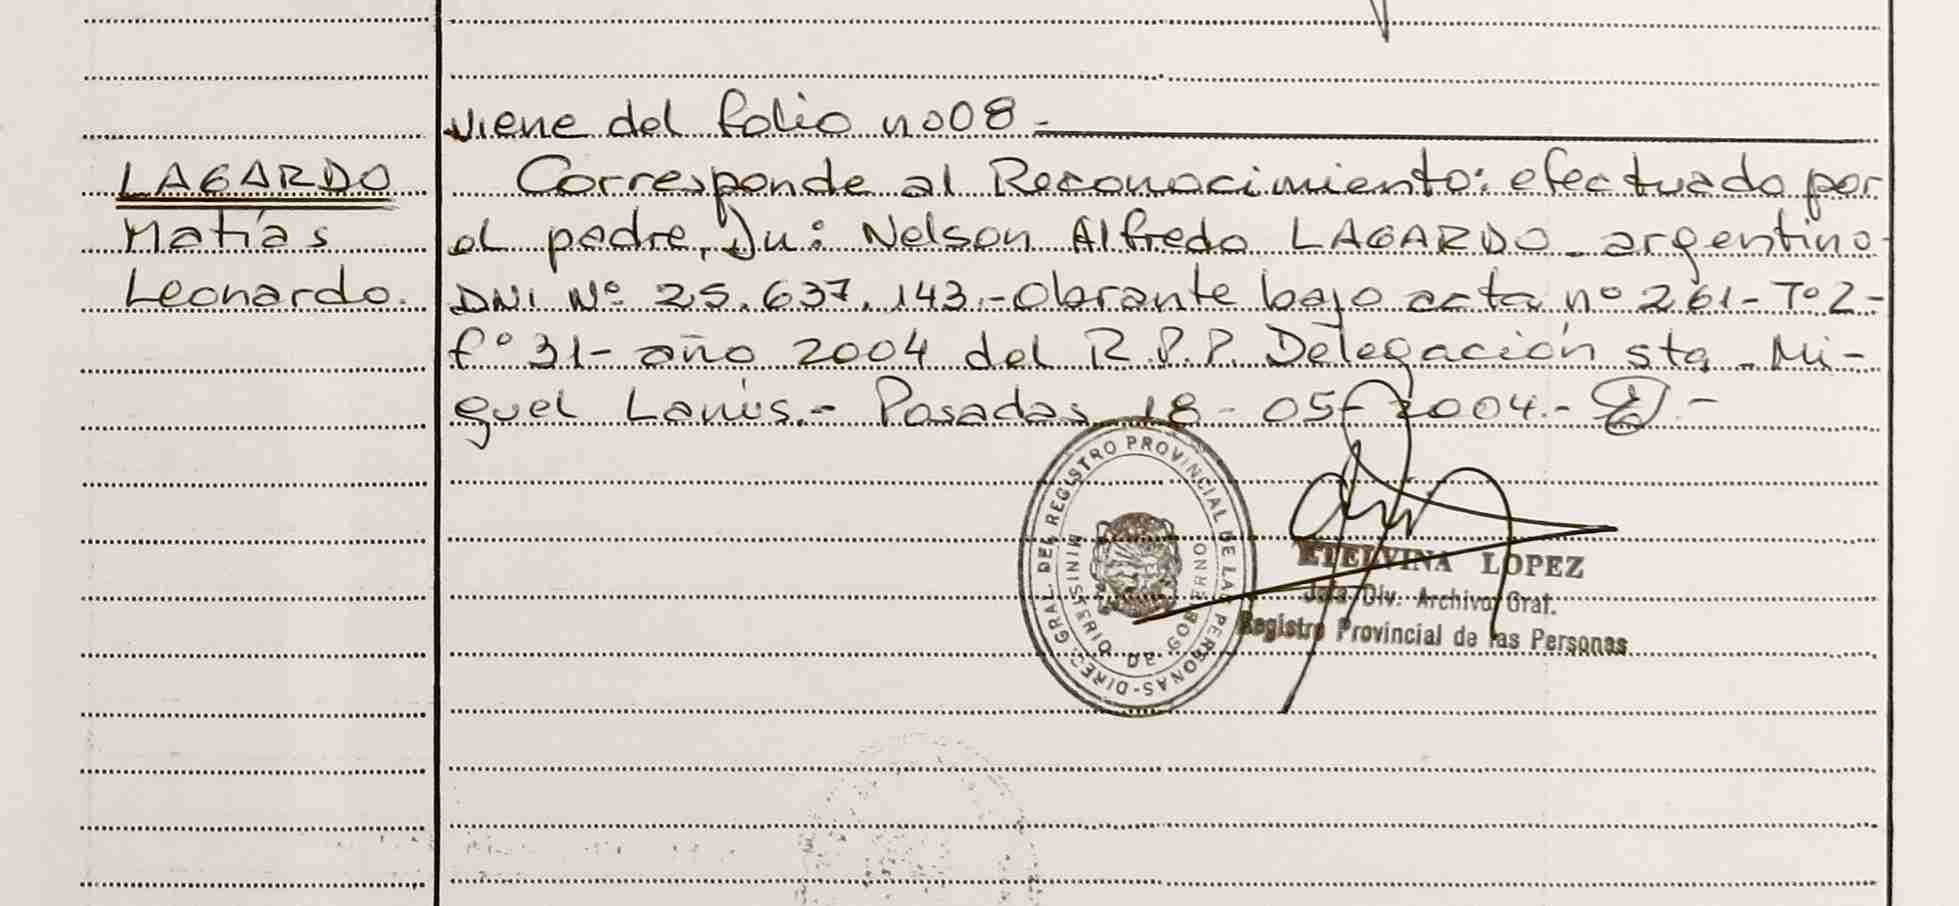 viene del folio nº 08 -
LAGARDO
Matías
Leonardo.
Corresponde al Reconocimiento: efectuado por
el padre, Dn: Nelson Alfredo LAGARDO - argentino-
DNI Nº 25.637.143.- Obrante bajo acta nº 261 - Tº 2 -
fº 31 - año 2004 del R.P.P. Delegación sta - Mi-
guel Lanús.- Posadas 18 - 05 - 2004.-
DIREC. GRAL. DEL REGISTRO PROVINCIAL DE LAS PERSONAS-
MINISTERIO DE GOBIERNO
ETELVINA LOPEZ
Jefa Div. Archivo Gral.
Registro Provincial de las Personas